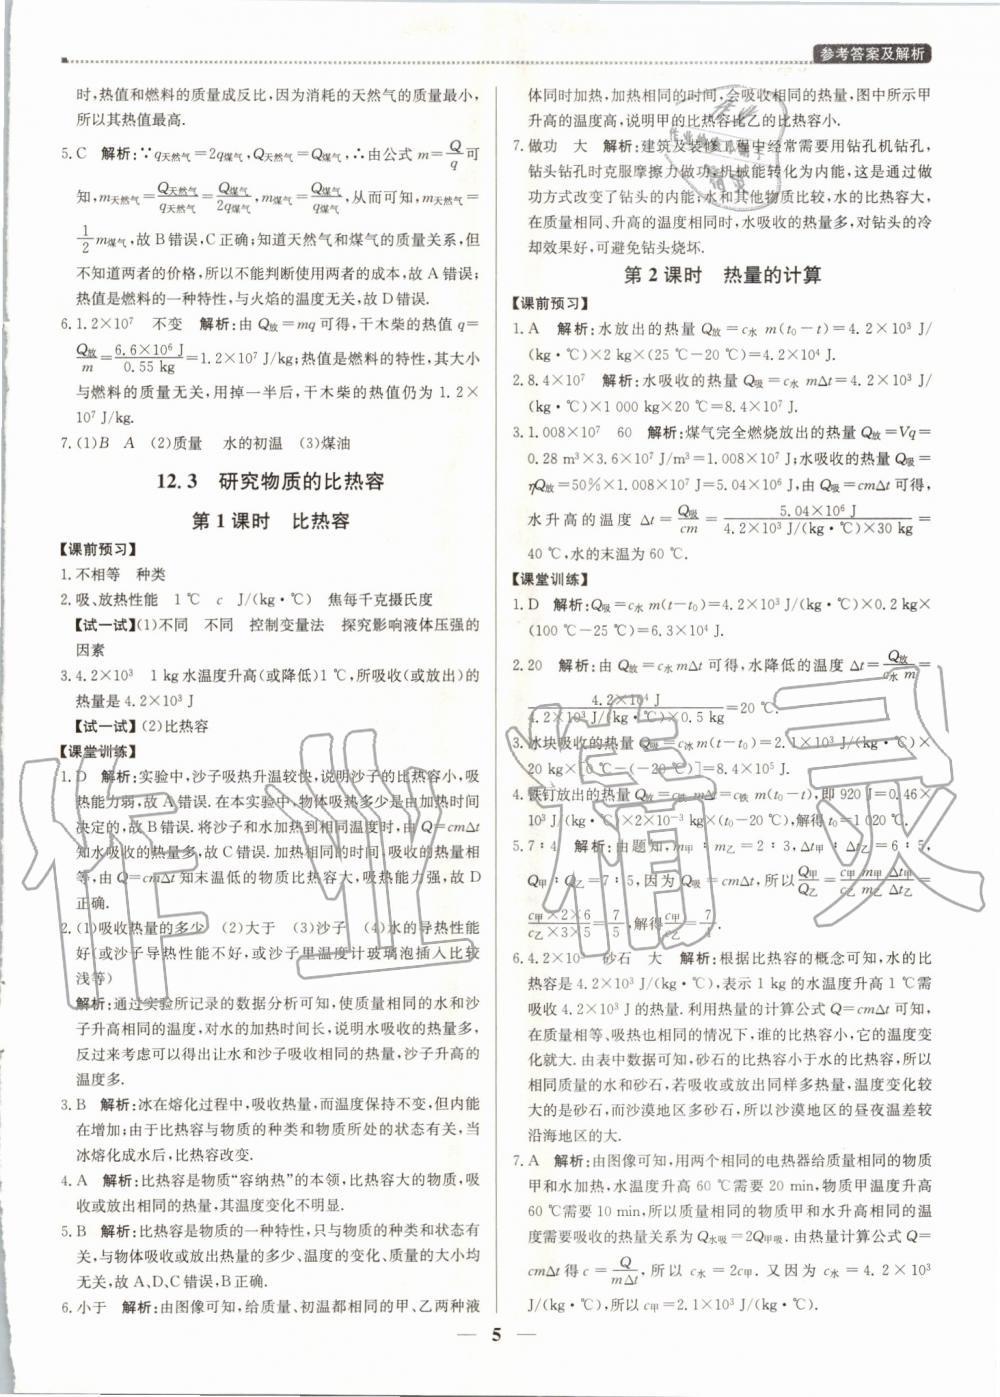 参考答案及解析
时,热值和燃料的质量成反比,因为消耗的天然气的质量最小,
所以其热值最高.
5. C 解析:∵q天然气=2q煤气,Q天然气=Q煤气,∴由公式 m=Q/q 可
知,m天然气=Q天然气/q天然气=Q煤气/2q煤气,m煤气=Q煤气/q煤气,从而可知,m天然气=
1/2 m煤气,故 B 错误,C 正确;知道天然气和煤气的质量关系,但
不知道两者的价格,所以不能判断使用两者的成本,故 A 错误;
热值是燃料的一种特性,与火焰的温度无关,故 D 错误.
6. 1.2×10⁷ 不变 解析:由 Q放=mq 可得,干木柴的热值 q=
Q放/m=6.6×10⁶ J/0.55 kg=1.2×10⁷ J/kg;热值是燃料的特性,其大小
与燃料的质量无关,用掉一半后,干木柴的热值仍然为 1.2×
10⁷ J/kg.
7. (1)B A (2)质量 水的初温 (3)煤油
12.3 研究物质的比热容
第 1 课时 比热容
【课前预习】
1. 不相等 种类
2. 吸、放热性能 1 ℃ c J/(kg·℃) 焦每千克摄氏度
【试一试】(1)不同 不同 控制变量法 探究影响液体压强的
因素
3. 4.2×10³ 1 kg 水温度升高(或降低)1 ℃,所吸收(或放出)的
热量是 4.2×10³ J
【试一试】(2)比热容
【课堂训练】
1. D 解析:实验中,沙子吸热升温较快,说明沙子的比热容小,吸
热能力弱,故 A 错误. 在本实验中,物体吸热多少是由加热时间
决定的,故 B 错误. 将沙子和水加热到相同温度时,由 Q=cmΔt
知水吸收的热量多,故 C 错误. 加热时间相同,吸收的热量相
等,由 Q=cmΔt 知末温低的物质比热容大,吸热能力强,故 D
正确.
2. (1)吸收热量的多少 (2)大于 (3)沙子 (4)水的导热性能
好(或沙子导热性能不好,或沙子里温度计玻璃泡插入比较
浅等)
解析:通过实验所记录的数据分析可知,使质量相同的水和沙
子升高相同的温度,对水的加热时间长,说明水吸收的热量多,
反过来考虑可以得出让水和沙子吸收相同的热量,沙子升高的
温度多.
3. B 解析:冰在熔化过程中,吸收热量,而温度保持不变,但内能
在增加;由于比热容与物质的种类和物质所处的状态有关,当
冰熔化成水后,比热容改变.
4. A 解析:比热容是物质“容纳热”的本领,比热容大的物质,吸
收或放出相同的热量,其温度变化不明显.
5. B 解析:比热容是物质的一种特性,只与物质的种类和状态有
关,与物体吸收或放出热量的多少、温度的变化、质量的大小均
无关,故 A、D、C 错误,B 正确.
6. 小于 解析:由图像可知,给质量、初温都相同的甲、乙两种液
体同时加热,加热相同的时间,会吸收相同的热量,图中所示甲
升高的温度高,说明甲的比热容比乙的比热容小.
7. 做功 大 解析:建筑及装修工程中经常需要用钻孔机钻孔,
钻头钻孔时克服摩擦力做功,机械能转化为内能,这是通过做
功方式改变了钻头的内能;水和其他物质比较,水的比热容大,
在质量相同、升高的温度相同时,水吸收的热量多,对钻头的冷
却效果好,可避免钻头烧坏.
第 2 课时 热量的计算
【课前预习】
1. A 解析:水放出的热量 Q放=c水 m(t₀-t)=4.2×10³ J/
(kg·℃)×2 kg×(25 ℃-20 ℃)=4.2×10⁴ J.
2. 8.4×10⁷ 解析:水吸收的热量 Q吸=c水 mΔt=4.2×10³ J/
(kg·℃)×1 000 kg×20 ℃=8.4×10⁷ J.
3. 1.008×10⁷ 60 解析:煤气完全燃烧放出的热量 Q放=Vq=
0.28 m³×3.6×10⁷ J/m³=1.008×10⁷ J;水吸收的热量 Q吸=
ηQ放=50%×1.008×10⁷ J=5.04×10⁶ J,由 Q吸=cmΔt 可得,
水升高的温度 Δt=Q吸/cm=5.04×10⁶ J/4.2×10³ J/(kg·℃)×30 kg=
40 ℃,水的末温为 60 ℃.
【课堂训练】
1. D 解析:Q吸=c水 m(t-t₀)=4.2×10³ J/(kg·℃)×0.2 kg×
(100 ℃-25 ℃)=6.3×10⁴ J.
2. 20 解析:由 Q放=c水 mΔt 可得,水降低的温度 Δt=Q放/c水 m=
4.2×10⁴ J/4.2×10³ J/(kg·℃)×0.5 kg=20 ℃.
3. 冰块吸收的热量 Q吸=c冰 m(t-t₀)=2.1×10³ J/(kg·℃)×
20 kg×[0 ℃-(-20 ℃)]=8.4×10⁵ J.
4. 铁钉放出的热量 Q放=c铁 mΔt=c铁 m(t₀-t),即 920 J=0.46×
10³ J/(kg·℃)×2×10⁻³ kg×(t₀-20 ℃),解得 t₀=1 020 ℃.
5. 7∶4 解析:由题知,m甲∶m乙=2∶3,Δt甲∶Δt乙=6∶5,
Q甲∶Q乙=7∶5,因为 Q吸=cmΔt,所以Q甲/Q乙=c甲 m甲 Δt甲/c乙 m乙 Δt乙=
c甲×2×6/c乙×3×5=7/5,解得c甲/c乙=7/4.
6. 4.2×10³ 砂石 大 解析:根据比热容的概念可知,水的比
热容是 4.2×10³ J/(kg·℃),表示 1 kg 的水温度升高 1 ℃需
吸收 4.2×10³ J 的热量. 利用热量的计算公式 Q=cmΔt 可知,
在质量相等、吸热也相同的情况下,谁的比热容小,它的温度变
化就大. 由表中数据可知,砂石的比热容小于水的比热容,所以
相同质量的水和砂石,若吸收或放出同样多热量,温度变化较
大的是砂石,而沙漠地区多砂石,所以沙漠地区的昼夜温差较
沿海地区的大.
7. A 解析:由图像可知,用两个相同的电热器给质量相同的物质
甲和水加热,水温度升高 60 ℃需要 20 min,物质甲温度升高
60 ℃需要 10 min,所以质量相同的物质甲和水升高相同的温
度需要吸收的热量关系为 Q水吸=2Q甲吸. 由热量计算公式 Q=
cmΔt 得 c=Q/mΔt,所以 c水=2c甲. 又因为 c水=4.2×10³
J/(kg·℃),所以 c甲=2.1×10³ J/(kg·℃).
5
作业精灵